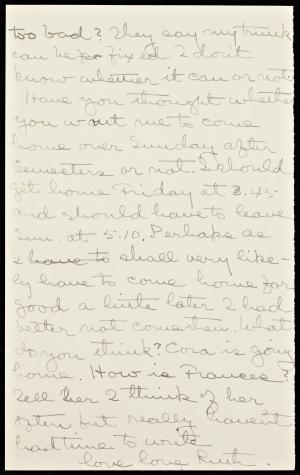 too bad? They say my trunk
can be fixed. I don't
know whether it can or not.
Have you thought whether
you want me to come
home over Sunday after
Semesters or not. I should
get home Friday at 3.45
and should have to leave
Sun. at 5.10. Perhaps as
I have to shall very like-
ly have to come home for
good a little later I had
better not come then. What
do you think? Cora is going
home. How is Frances?
Tell her I think of her
often but really haven't
had time to write
love love Ruth.